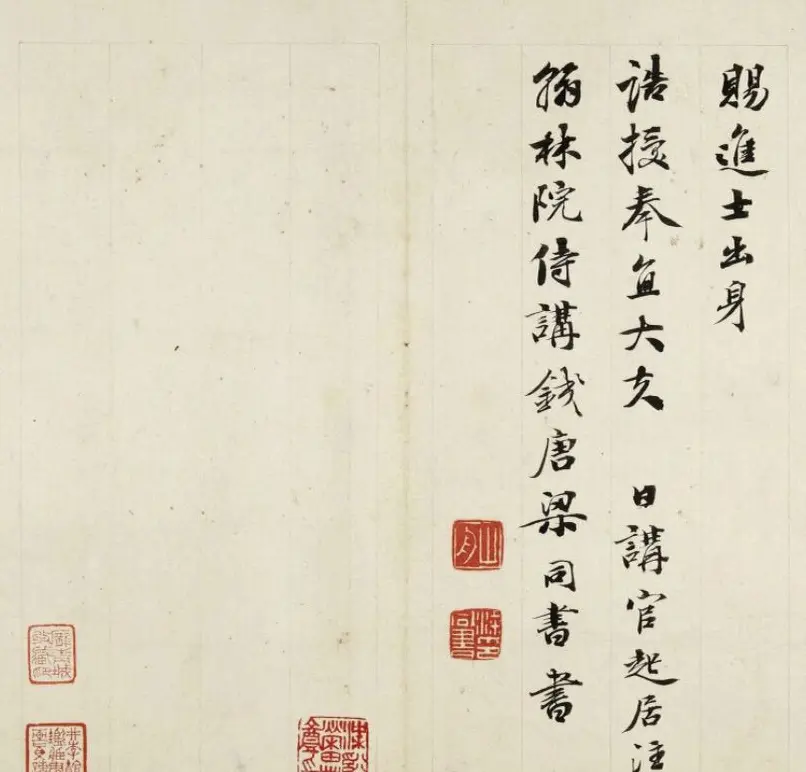 賜進士出身
誥授奉直大夫 日講官起居注
翰林院侍講錢唐梁同書書